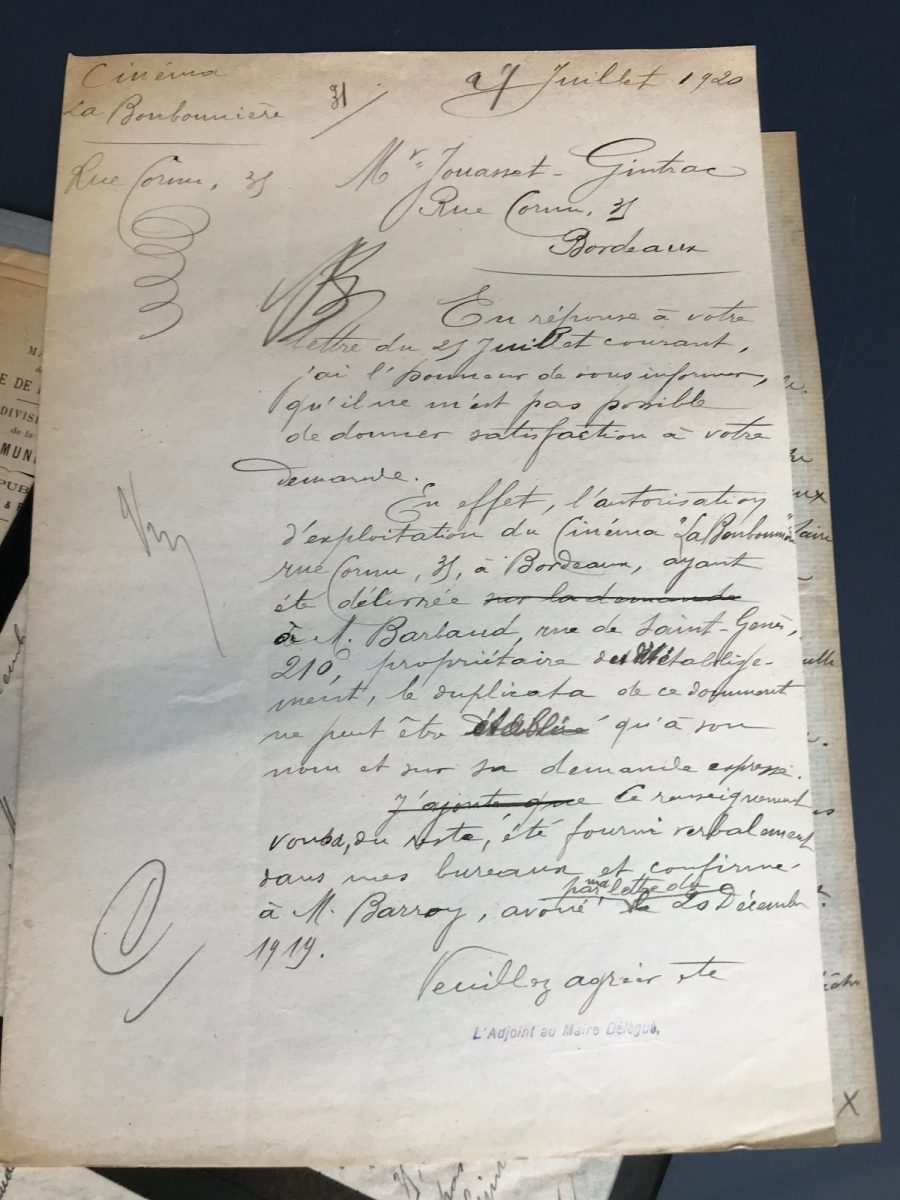 Cinéma
La Bonbonnière
Rue Cornu, 31
31
27 Juillet 1920
Mr Jouasset-Gintrac
Rue Cornu, 31
Bordeaux
En réponse à votre
lettre du 25 Juillet courant,
j'ai l'honneur de vous informer,
qu'il ne m'est pas possible
de donner satisfaction à votre
demande.
En effet, l'autorisation
d'exploitation du Cinéma "La Bonbonnière"
rue Cornu, 31, à Bordeaux, ayant
été délivrée sur la demande
à M. Barbaud, rue de Saint-Genès,
210, propriétaire de l'établisse-
ment, le duplicata de ce document
ne peut être établi qu'à son
nom et sur sa demande expresse.
J'ajoute que Ce renseignement
vous a, du reste, été fourni verbalement
dans mes bureaux et confirmé
par ma lettre du
à M. Barroy, avoué le 20 Décembre
1919.
Veuillez agréer etc
L'Adjoint au Maire Délégué,
DIVISI
de la
MUNI
PUB
X